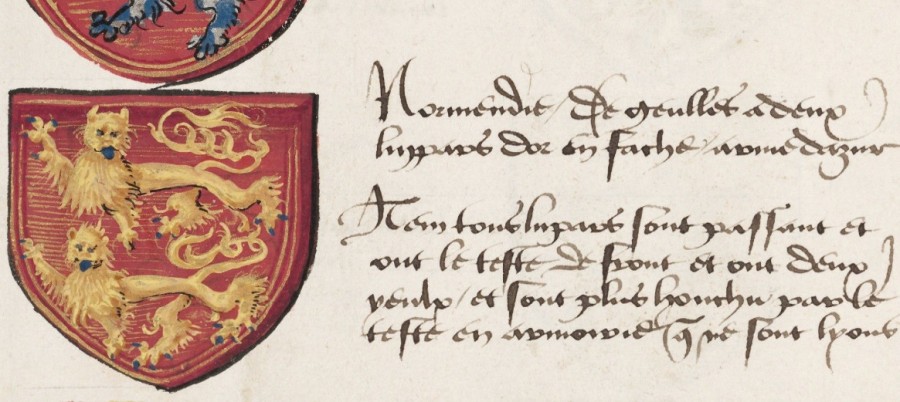 Normendie / De geulles a deux
luppars dor en fache / arme dazur
Item tous lupars sont passant et
ont le teste de front et ont deux
yeulx / et sont plus honchu par le
teste en armoirie q̄ ne sont lyons